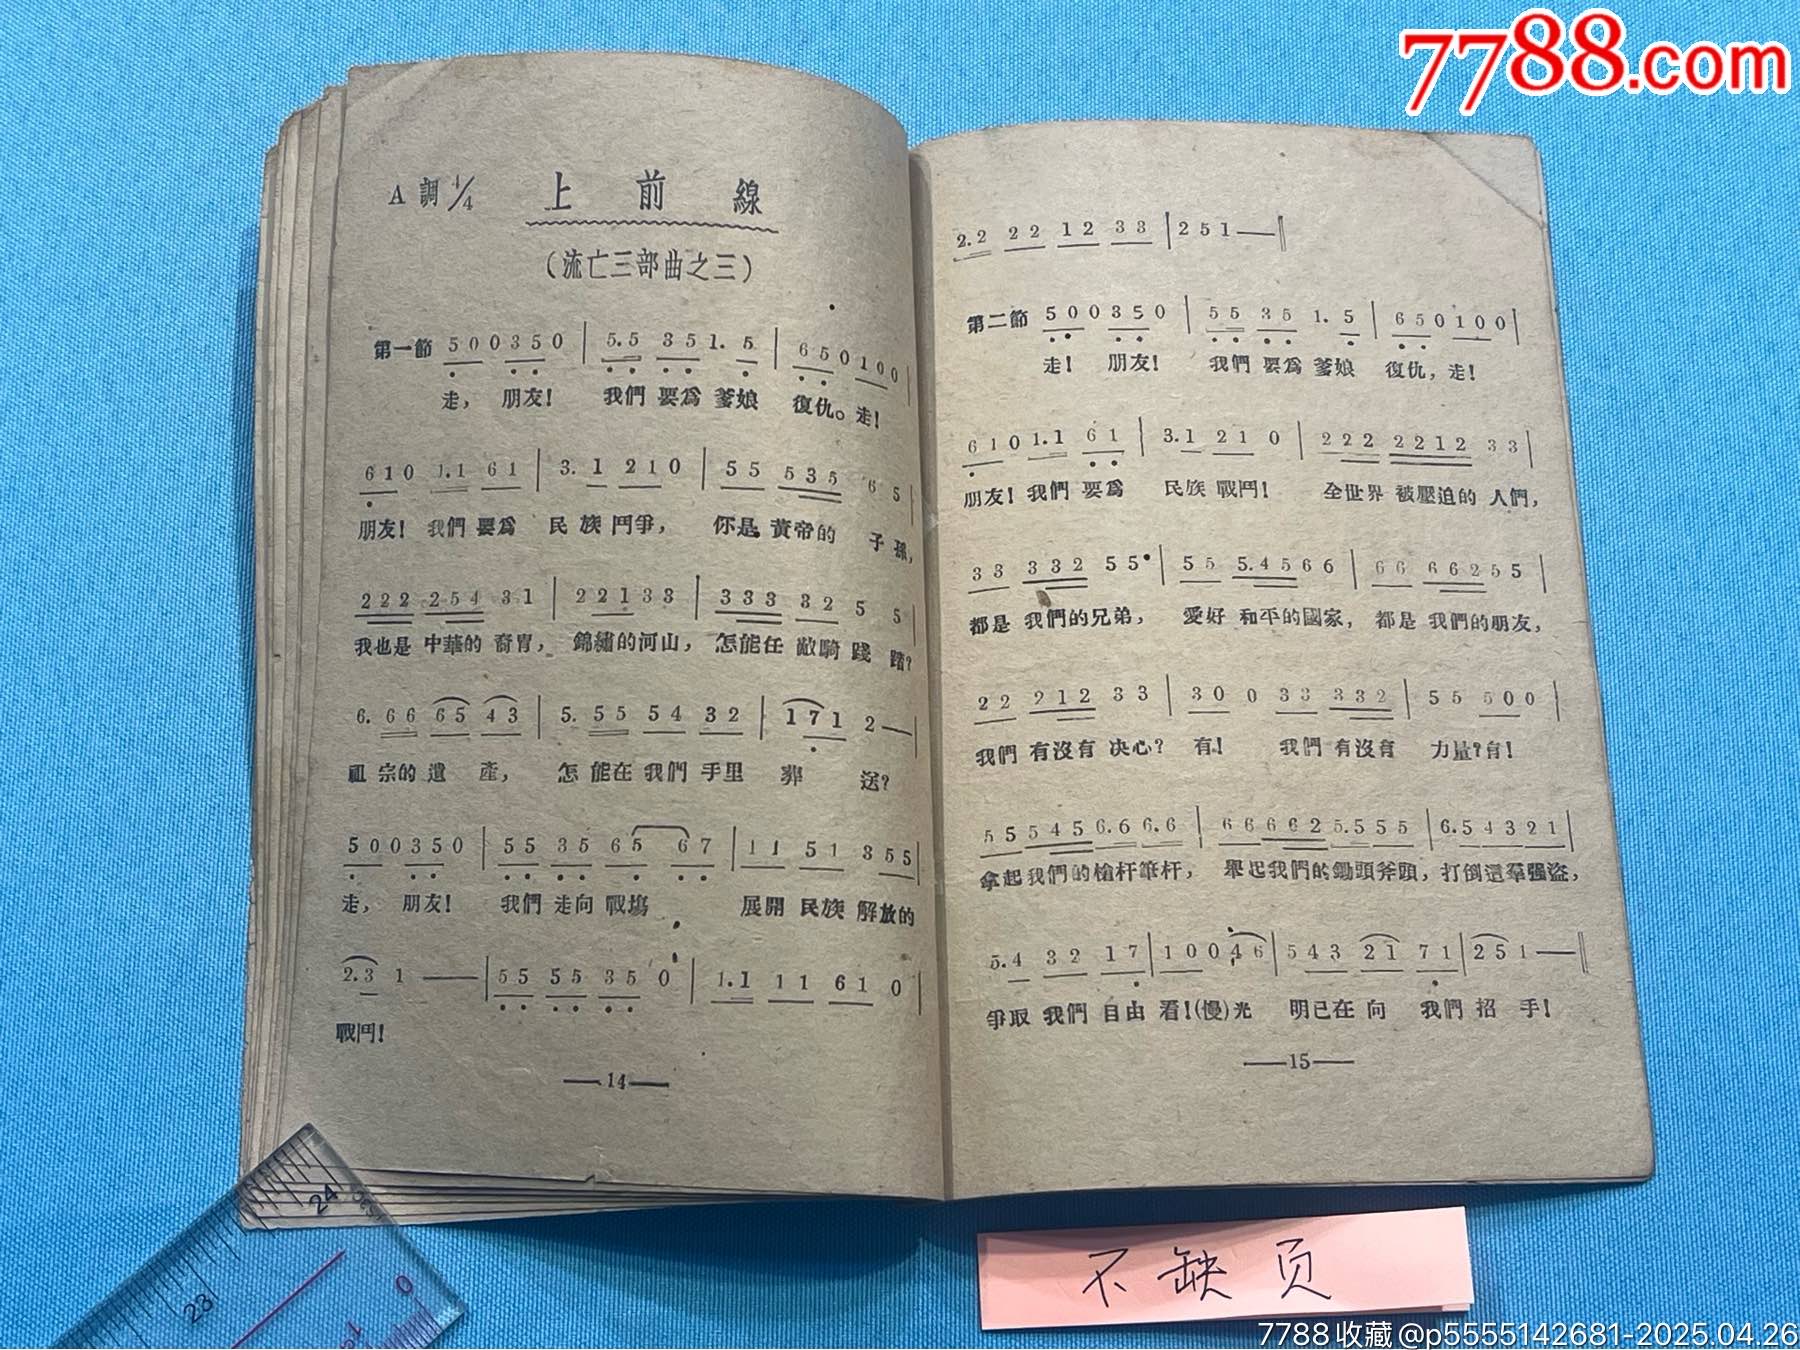 7788.com
A 調 4/4 上前線
(流亡三部曲之三)
第一節 5 0 0 3 5 0 | 5.5 3 5 1. 5 | 6 5 0 1 0 0 |
走， 朋友! 我們 要為 爹娘 復仇。走!
6 1 0 1.1 6 1 | 3. 1 2 1 0 | 5 5 5 3 5 6 5 |
朋友! 我們 要為 民 族 鬥爭， 你是 黃帝的 子 孫，
2 2 2 2 5 4 3 1 | 2 2 1 3 3 | 3 3 3 3 2 5 5 |
我也是 中華的 裔冑， 錦繡的河山， 怎能任 敵騎 踐 踏?
6. 6 6 6 5 4 3 | 5. 5 5 5 4 3 2 | 1 7 1 2 — |
祖 宗的 遺 產， 怎 能在 我們 手里 葬 送?
5 0 0 3 5 0 | 5 5 3 5 6 5 6 7 | 1 1 5 1 3 5 5 |
走， 朋友! 我們 走向 戰塲 展開 民族 解放的
2.3 1 — | 5 5 5 5 3 5 0 | 1.1 1 1 6 1 0 |
戰鬥!
—14—
2.2 2 2 1 2 3 3 | 2 5 1 — ‖
第二節 5 0 0 3 5 0 | 5 5 3 5 1. 5 | 6 5 0 1 0 0 |
走! 朋友! 我們 要為 爹娘 復仇，走!
6 1 0 1.1 6 1 | 3.1 2 1 0 | 2 2 2 2 2 1 2 3 3 |
朋友! 我們 要為 民族 戰鬥! 全世界 被壓迫的 人們，
3 3 3 3 2 5 5 | 5 5 5.4 5 6 6 | 6 6 6 6 2 5 5 |
都是 我們的兄弟， 愛好 和平的國家， 都是 我們的朋友，
2 2 2 1 2 3 3 | 3 0 0 3 3 3 3 2 | 5 5 5 0 0 |
我們 有沒有 決心? 有! 我們 有沒有 力量?有!
5 5 5 4 5 6.6 6.6 | 6 6 6 6 2 5.5 5 5 | 6.5 4 3 2 1 |
拿起我們的槍杆筆杆， 舉起我們的鋤頭斧頭，打倒這羣强盜，
5.4 3 2 1 7 | 1 0 0 4 6 | 5 4 3 2 1 7 1 | 2 5 1 — ‖
爭取 我們 自由 看!(慢)光 明已在 向 我們 招 手!
—15—
不缺页
24
23
0
7788收藏@p5555142681-2025.04.26